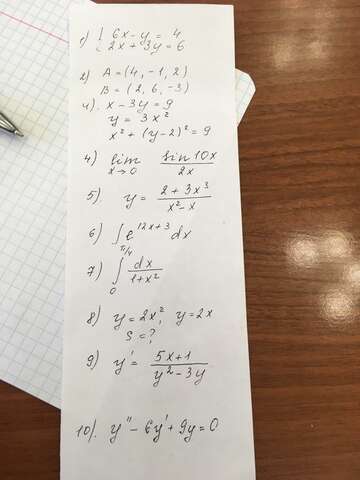 1) { 6x - y = 4
2x + 3y = 6
2) A = (4, -1, 2)
B = (2, 6, -3)
4). x - 3y = 9
y = 3x²
x² + (y-2)² = 9
4) lim x→0 sin10x / 2x
5) y = (2 + 3x³) / (x² - x)
6) ∫ e^(12x+3) dx
7) ∫₀^(π/4) dx / (1+x²)
8) y = 2x², y = 2x
S = ?
9) y' = (5x+1) / (y² - 3y)
10). y'' - 6y' + 9y = 0